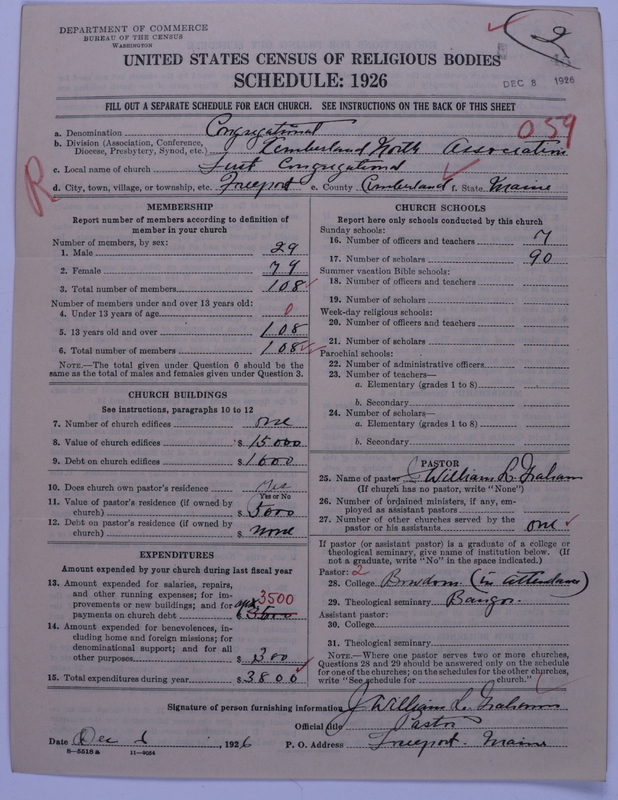 DEPARTMENT OF COMMERCE
BUREAU OF THE CENSUS
WASHINGTON
2
UNITED STATES CENSUS OF RELIGIOUS BODIES
SCHEDULE: 1926
DEC 8 1926
FILL OUT A SEPARATE SCHEDULE FOR EACH CHURCH. SEE INSTRUCTIONS ON THE BACK OF THIS SHEET
a. Denomination Congregational
059
b. Division (Association, Conference, Diocese, Presbytery, Synod, etc.) Cumberland North Association
c. Local name of church First Congregational
R
d. City, town, village, or township, etc. Freeport e. County Cumberland f. State Maine
MEMBERSHIP
Report number of members according to definition of
member in your church
Number of members, by sex:
1. Male 29
2. Female 79
3. Total number of members 108
Number of members under and over 13 years old:
4. Under 13 years of age 0
5. 13 years old and over 108
6. Total number of members 108
NOTE.—The total given under Question 6 should be
same as the total of males and females given under Question 3.
CHURCH BUILDINGS
See instructions, paragraphs 10 to 12
7. Number of church edifices one
8. Value of church edifices $ 15000
9. Debt on church edifices $ 1600
10. Does church own pastor's residence Yes
Yes or No
11. Value of pastor's residence (if owned by
church) $ 5000
12. Debt on pastor's residence (if owned by
church) $ none
EXPENDITURES
Amount expended by your church during last fiscal year
13. Amount expended for salaries, repairs,
and other running expenses; for im-
provements or new buildings; and for
3500
payments on church debt $ 3500
14. Amount expended for benevolences, in-
cluding home and foreign missions; for
denominational support; and for all
other purposes $ 300
15. Total expenditures during year $ 3800
CHURCH SCHOOLS
Report here only schools conducted by this church
Sunday schools:
16. Number of officers and teachers 7
17. Number of scholars 90
Summer vacation Bible schools:
18. Number of officers and teachers
19. Number of scholars
Week-day religious schools:
20. Number of officers and teachers
21. Number of scholars
Parochial schools:
22. Number of administrative officers
23. Number of teachers—
a. Elementary (grades 1 to 8)
b. Secondary
24. Number of scholars—
a. Elementary (grades 1 to 8)
b. Secondary
PASTOR
25. Name of pastor J. William L. Graham
(If church has no pastor, write "None")
26. Number of ordained ministers, if any, em-
ployed as assistant pastors
27. Number of other churches served by the
pastor or his assistants one
If pastor (or assistant pastor) is a graduate of a college or
theological seminary, give name of institution below. (If
not a graduate, write "No" in the space indicated.)
Pastor: 2
28. College Bowdoin (in attendance)
29. Theological seminary Bangor.
Assistant pastor:
30. College
31. Theological seminary
NOTE.—Where one pastor serves two or more churches,
Questions 28 and 29 should be answered only on the schedule
for one of the churches; on the schedules for the other churches,
write "See schedule for church."
Signature of person furnishing information J. William L. Graham
Official title Pastor
Date Dec 6, 1926 P. O. Address Freeport. Maine
8—5518a 11—9054